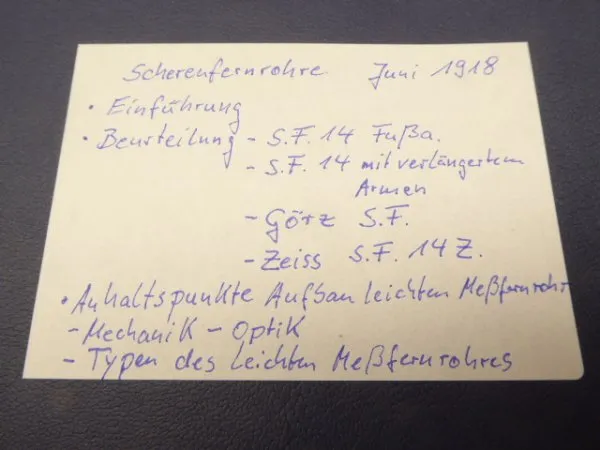 Scherenfernrohre Juni 1918
• Einführung
• Beurteilung - S.F. 14 Fußa.
- S.F. 14 mit verlängertem
Armen
- Görz S.F.
- Zeiss S.F. 14 Z.
• Anhaltspunkte Aufbau leichten Meßfernrohr
- Mechanik - Optik
- Typen des leichten Meßfernrohres